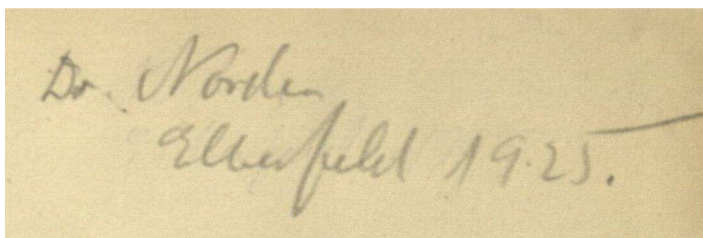 Dr. Norden
Elberfeld 1925.